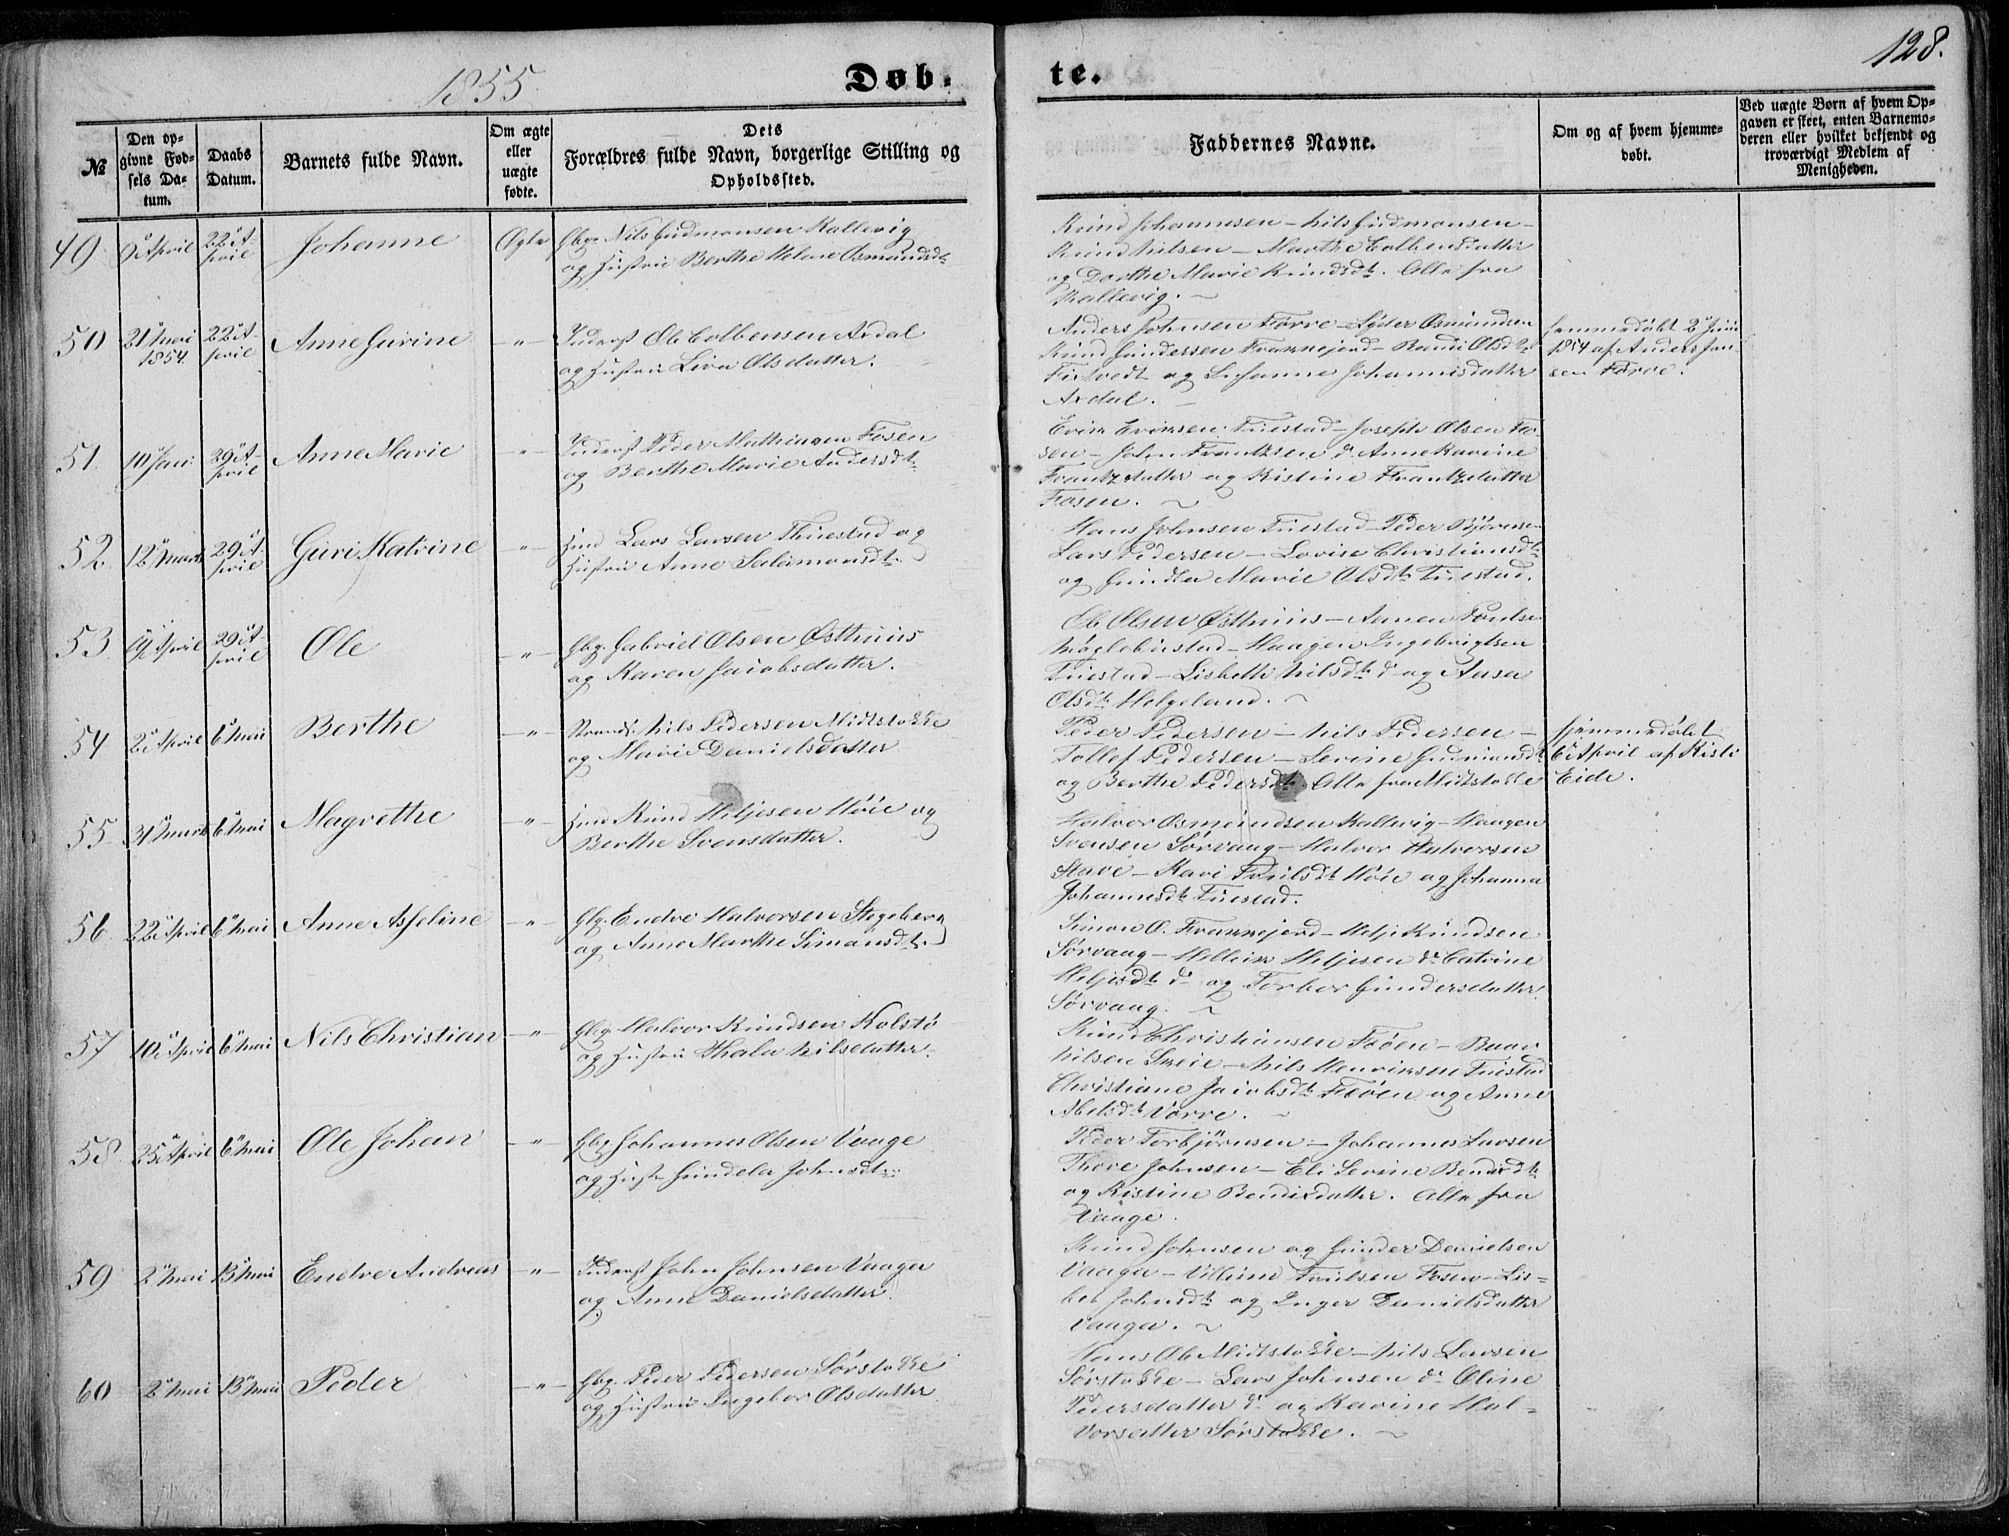 128.
1855
Døb-
te.
№
Den op-
givne Fød-
sels Da-
tum.
Daabs
Datum.
Barnets fulde Navn.
Om ægte
eller
uægte
fødte.
Dets
Forældres fulde Navn, borgerlige Stilling og
Opholdssted.
Faddernes Navne.
Om og af hvem hjemme-
døbt.
Ved uægte Børn af hvem Op-
gaven er skeet, enten Barnemo-
deren eller hvilket bekjendt og
troværdigt Medlem af
Menigheden.
49
April
22 A-
pril
Johanne
Ægte
Gbr Nils Gudmonsen Kallevig
og Hustru Berthe Helene Osmundsdt
Knud Johannesen – Nils Gudmonsen –
Knud Nilsen – Marthe Colbensdatter
og Dorthe Marie Knudsdt. Alle fra
Kallevig. ~
50
21 Mai
1854
22 A-
pril
Anne Gurine
–"–
Inderst Ole Colbensen Ardal
og Hustru Liva Olsdatter.
Anders Johnsen Førre – Osmundsen
Knud Gundersen Frannejord – Randi Olsdt
Fistvedt og Susanne Johannisdatter
Ardal. –
hjemmedøbt 2 Juni
1854 af Anders Jon-
sen Førre.
51.
10 Jan:
29 A-
pril
Anne Marie
–"–
Inderst Peder Mathiasen Fosen
og Berthe Marie Andersdt.
Erik Eriksen Tuestad – Joseph Olsen Fo-
sen – John Frantzsen do Anne Karine
Frantzdatter og Kistine Frantzdatter
Fosen. ~
52.
12 Marts
29 A-
pril
Guri Katrine
–"–
Hmd Lars Larsen Thuestad og
Hustru Anne Salamonsdt.
Hans Johnsen Tuestad – Peder Bjørnsen
Lars Pedersen – Lovise Christiansdt
og Gundla Marie Olsdt Tuestad.
53
April
29 A-
pril
Ole
–"–
Gbr Gabriel Olsen Østhuus
og Karen Jacobsdatter.
Ole Olsen Østhuus – Poulsen
– Haagen Ingebrigtsen
Tuestad – Lisbeth Nilsdt do og Aasa
Olsdt Helgeland. ~
54
2 April
6 Mai
Berthe
–"–
Nils Pedersen Midtstokke
og Marie Danielsdatter
Peder Pedersen – Nils Pedersen –
Tollef Pedersen – Serine Gudmonsdt
og Berthe Pedersdt Alle fra Midtstokke
hjemmedøbt
6 April af Kisti
Eide.
55
31 Marts
6 Mai
Magrethe
–"–
Hmd Knud Heljesen Høie og
Berthe Svensdatter.
Halvor Osmundsen Kallevig – Haagen
Svensen Sørvaag – Halvor Halvorsen
Stave – Kari Poulsdt Høie og Johanna
Johannesdt Tuestad.
56
22 April
6 Mai
Anne Asseline
–"–
Gbr. Endre Halvorsen Stegaberg
og Anne Marthe Simonsdt.
Simon O. Frannejord – Helje Knudsen
Sørvaag – Hellik Heljesen do Catrine
Heljesdt do og Torbor Gundersdatter
Sørvaag. ~
57
10 April
6 Mai
Nils Christian
–"–
Gbr Halvor Knudsen Kolstø
og Hustru Thala Nilsdatter.
Knud Christiansen Fføen – Baar
Nilsen Sneie – Nils Henriksen Tuestad
Christiane Jacobsdt Fføen og Anne
Abelsdt Vorre. ~
58.
25 April
6 Mai
Ole Johan
–"–
Gbr Johannes Olsen Vaage
og Hust Gundela Johnsdt.
Peder Torbjørnsen – Johannes Larsen
Thore Johnsen – Eli Serine Bendixdt
og Kistine Bendixdatter. Alle fra
Vaage.
59
2 Mai
13 Mai
Endre Andreas
–"–
Inderst John Johnsen Vaaga
og Anne Danielsdatter.
Knud Johnsen og Gunder Danielsen
Vaaga – Villum Poulsen Fosen – Lis-
bet Johnsdt og Inger Danielsdatter
Vaaga. ~
60
2 Mai
13 Mai
Peder
–"–
Gbr. Peder Pedersen Sørstokke
og Hustru Ingebor Olsdatter
Hans Ole Midtstokke – Nils Larsen
Sørstokke – Lars Johnsen do Oline
Pedersdatter do og Karine Hal-
vorsdatter Sørstokke. ~